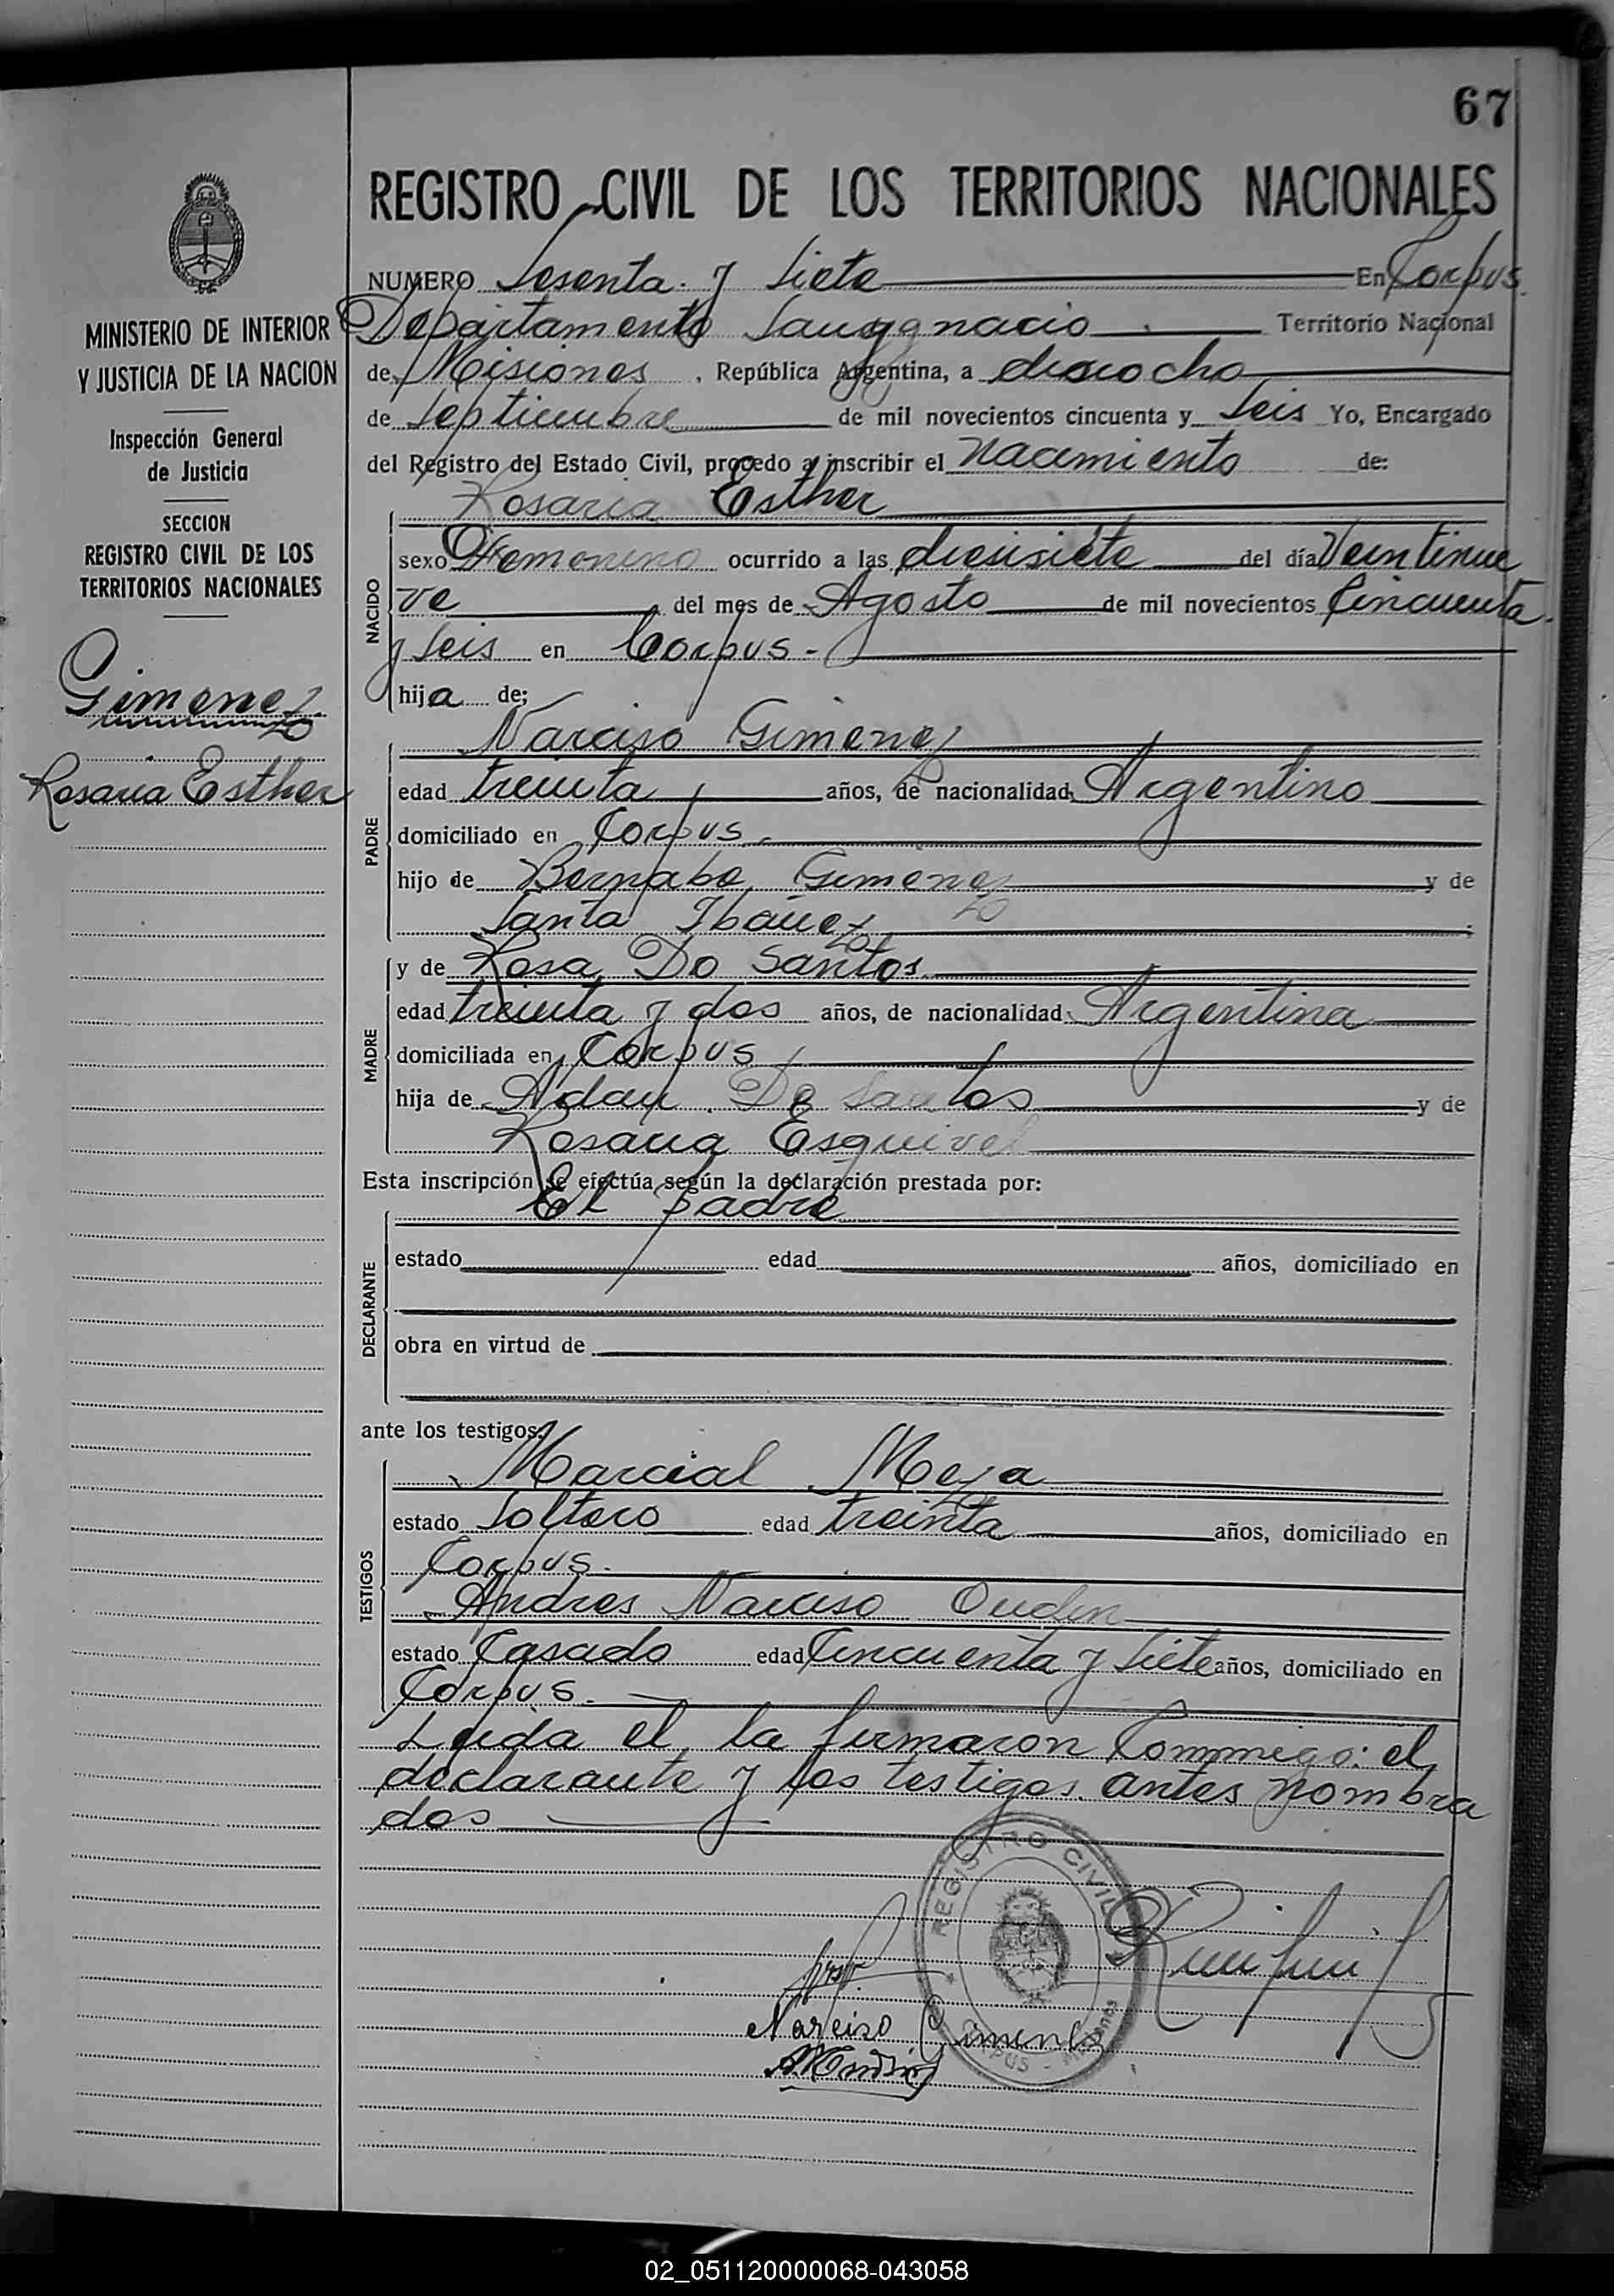 67
REGISTRO CIVIL DE LOS TERRITORIOS NACIONALES
NUMERO Sesenta y Siete En Corpus
Departamento San Ygnacio Territorio Nacional
de Misiones, República Argentina, a dieciocho
de Septiembre de mil novecientos cincuenta y Seis Yo, Encargado
del Registro del Estado Civil, procedo a inscribir el nacimiento de:
Rosaria Esther
NACIDO
sexo Femenino ocurrido a las diesisiete del día Veintinue
ve del mes de Agosto de mil novecientos Cincuenta
y Seis en Corpus.-
hija de;
PADRE
Narciso Gimenez
edad treinta años, de nacionalidad Argentino
domiciliado en Corpus.
hijo de Bernabe Gimenez y de
Santa Ibáñez
MADRE
y de Rosa Do Santos
edad treinta y dos años, de nacionalidad Argentina
domiciliada en Corpus
hija de Adan Do Santos y de
Rosaria Esquivel
Esta inscripción se efectúa según la declaración prestada por:
El padre
DECLARANTE
estado edad años, domiciliado en
obra en virtud de
ante los testigos:
TESTIGOS
Marcial Meza
estado Soltero edad treinta años, domiciliado en
Corpus.
Andres Narciso
estado Casado edad Cincuenta y Siete años, domiciliado en
Corpus.
Leida el la firmaron Commigo: el
declarante y los testigos antes nombra
dos
REGISTRO CIVIL
CORPUS - MISIONES
Narciso Gimenes
MINISTERIO DE INTERIOR
Y JUSTICIA DE LA NACION
Inspección General
de Justicia
SECCION
REGISTRO CIVIL DE LOS
TERRITORIOS NACIONALES
Gimenez
Rosaria Esther
02_051120000068-043058